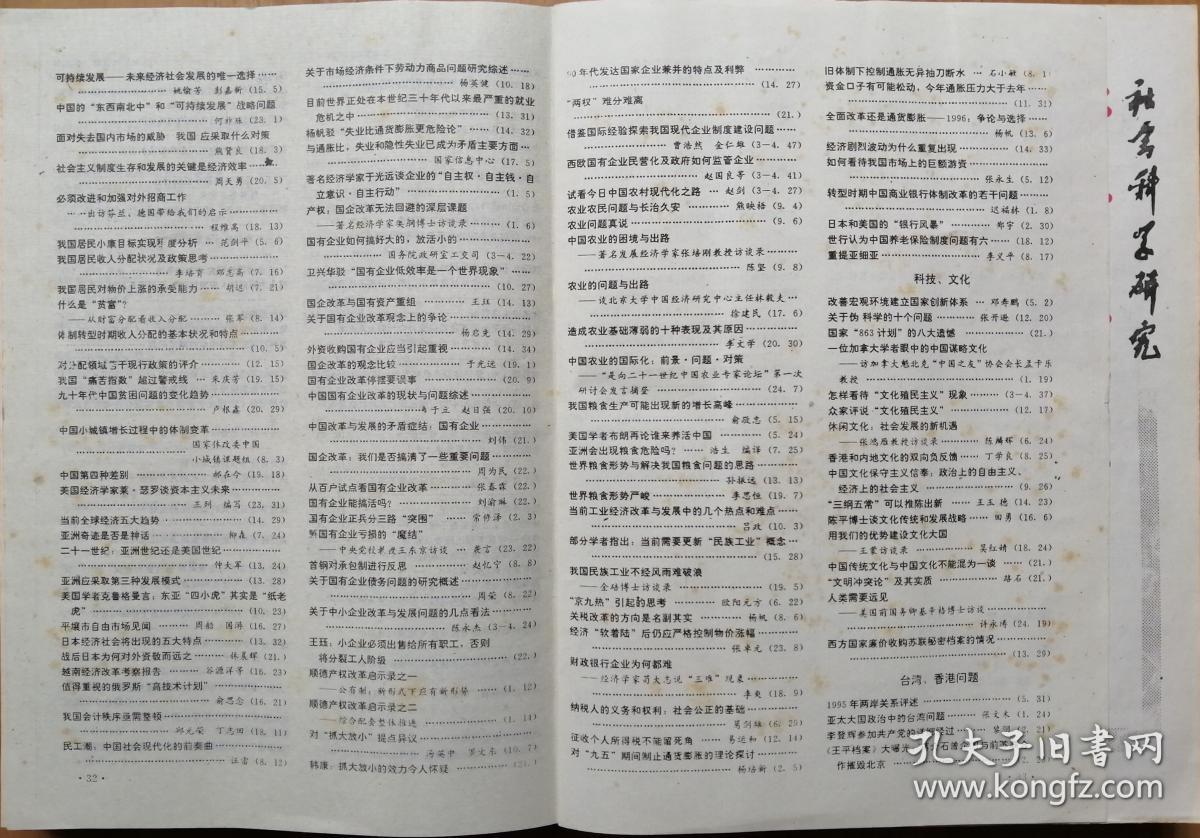 可持续发展——未来经济社会发展的唯一选择……
姚愉芳 彭嘉新 (15. 5)
中国的“东西南北中”和“可持续发展”战略问题
(23. 1)
面对失去国内市场的威胁 我国应采取什么对策
熊贤良 (18. 3)
社会主义制度生存和发展的关键是经济效率……
周天勇 (20. 5)
必须改进和加强对外招商工作
……出访芬兰、德国带给我们的启示……
程维高 (18. 13)
我国居民小康目标实现程度分析 … 范剑平 (5. 6)
我国居民收入分配状况及政策思考……
李培育 邓志高 (7. 16)
我国居民对物价上涨的承受能力…… 胡迟 (7. 21)
什么是“贫富”?
——从财富分配看收入分配…… 张军 (8. 14)
体制转型时期收入分配的基本状况和特点……
(10. 5)
对分配领域若干现行政策的评介…… (12. 15)
我国“痛苦指数”超过警戒线 … 朱庆芳 (19. 15)
九十年代中国贫困问题的变化趋势……
卢根鑫 (20. 29)
中国小城镇增长过程中的体制变革……
国家体改委中国
小城镇课题组 (8. 3)
中国第四种差别…… 郝在今 (19. 18)
美国经济学家莱·瑟罗谈资本主义未来……
王列 编写 (23. 31)
当前全球经济五大趋势…… (14. 29)
亚洲奇迹是否是神话…… 柳森 (7. 24)
二十一世纪:亚洲世纪还是美国世纪……
仲大军 (13. 24)
亚洲应采取第三种发展模式…… (13. 28)
美国学者克鲁格曼言:东亚“四小虎”其实是“纸老
虎”…… (10. 23)
平壤市自由市场见闻…… 周韬 国涛 (16. 27)
日本经济社会将出现的五大特点…… (13. 32)
战后日本为何对外资敬而远之…… 林晨辉 (21. )
越南经济改革考察报告…… 谷源洋等 (16. 23)
值得重视的俄罗斯“高技术计划”……
俞思念 (16. 21)
我国会计秩序亟需整顿……
邱元荣 丁志田 (18. 11)
民工潮:中国社会现代化的前奏曲……
汪雷 (8. 12)
·32·
关于市场经济条件下劳动力商品问题研究综述……
杨英健 (10. 18)
目前世界正处在本世纪三十年代以来最严重的就业
危机之中…… (13. 31)
杨帆驳“失业比通货膨胀更危险论”…… (14. 32)
与通胀比,失业和隐性失业已成为矛盾主要方面…
国家信息中心 (17. 5)
著名经济学家于光远谈企业的“自主权·自主钱·自
立意识·自主行动”…… (1. 5)
产权:国企改革无法回避的深层课题
——著名经济学家吴稼祥访谈录…… (1. 6)
国有企业如何搞好大的,放活小的……
国务院政研室工交司 (3—4. 22)
卫兴华驳“国有企业低效率是一个世界现象”……
(10. 27)
国企改革与国有资产重组…… 王珏 (14. 13)
关于国有企业改革观念上的争论……
杨启先 (14. 29)
外资收购国有企业应当引起重视…… (14. 34)
国企改革的观念比较…… 于光远 (19. 1)
国有企业改革停摆要误事…… (20. 9)
中国国有企业改革的现状与问题综述……
于立 赵日强 (20. 10)
中国改革与发展的矛盾症结:国有企业……
刘伟 (21. )
国企改革:我们是否搞清了一些重要问题……
周为民 (22. )
从百户试点看国有企业改革…… 张春霖 (22. )
国有企业能搞活吗?…… 刘渝琳 (22. )
国有企业正兵分三路“突围”…… 常修泽 (2. 3)
解国有企业亏损的“魔结”
——中央党校教授王东京访谈…… 袭言 (23. 22)
首钢对承包制进行反思…… 赵忆宁 (8. 8)
关于国有企业债务问题的研究概述……
周荣 (8. 22)
关于中小企业改革与发展问题的几点看法……
陈永杰 (3—4. 24)
王珏:小企业必须出售给所有职工,否则
将分裂工人阶级…… (22. )
顺德产权改革启示录之一
——公有制:新形式下应有新形势…… (1. 12)
顺德产权改革启示录之二
——综合配套整体推进…… (1. 14)
对“抓大放小”提点异议……
汤英中 罗文东 (10. 7)
韩康:抓大放小的效力令人怀疑…… (21. )
90年代发达国家企业兼并的特点及利弊……
(14. 27)
“两权”难分难离
…… (21. )
借鉴国际经验探索我国现代企业制度建设问题……
曹浩然 金仁雄 (3—4. 47)
西欧国有企业民营化及政府如何监管企业……
赵国良等 (3—4. 41)
试看今日中国农村现代化之路 … 赵剑 (3—4. 27)
农业农民问题与长治久安…… 熊映梧 (9. 4)
农业问题真说…… (9. 6)
中国农业的困境与出路
——著名发展经济学家张培刚教授访谈录……
陈坚 (9. 8)
农业的问题与出路
——谈北京大学中国经济研究中心主任林毅夫…
徐建民 (17. 6)
造成农业基础薄弱的十种表现及其原因……
李文学 (20. 30)
中国农业的国际化:前景·问题·对策
——“是向二十一世纪中国农业专家论坛”第一次
研讨会发言摘登…… (24. 7)
我国粮食生产可能出现新的增长高峰……
俞敬忠 (5. 15)
美国学者布朗再论谁来养活中国…… (5. 24)
亚洲会出现粮食危机吗?…… 浩生 编译 (7. 25)
世界粮食形势与解决我国粮食问题的思路……
孙振远 (13. 13)
世界粮食形势严峻…… 李思恒 (19. 7)
当前工业经济改革与发展中的几个热点和难点……
吕政 (10. 3)
部分学者指出:当前需要更新“民族工业”概念……
(15. 28)
我国民族工业不经风雨难破浪
——金碚博士访谈录…… (19. 5)
“京九热”引起的思考…… 欧阳元方 (6. 22)
关税改革的方向是名副其实…… 杨帆 (8. 6)
经济“软着陆”后仍应严格控制物价涨幅……
张卓元 (23. 8)
财政银行企业为何都难
——经济学家苟大志说“三难”现象……
李爽 (18. 9)
纳税人的义务和权利:社会公正的基础……
葛剑雄 (6. 29)
征收个人所得税不能留死角…… 易运和 (12. 14)
对“九五”期间制止通货膨胀的理论探讨……
杨培新 (2. 5)
旧体制下控制通胀无异抽刀断水 … 石小敏 (8. 1)
资金口子有可能松动,今年通胀压力大于去年……
(11. 31)
全面改革还是通货膨胀——1996:争论与选择……
杨帆 (13. 6)
经济剧烈波动为什么重复出现…… (14. 33)
如何看待我国市场上的巨额游资……
张永生 (5. 12)
转型时期中国商业银行体制改革的若干问题……
迟福林 (1. 8)
日本和美国的“银行风暴”…… 郑宇 (2. 30)
世行认为中国养老保险制度问题有六…… (18. 12)
重提亚细亚…… 李义平 (8. 17)
科技、文化
改善宏观环境建立国家创新体系 … 邓寿鹏 (5. 2)
关于伪科学的十个问题…… 张开逊 (12. 20)
国家“863计划”的八大遗憾…… (21. )
一位加拿大学者眼中的中国谋略文化
——访加拿大魁北克“中国之友”协会会长孟千乐
教授…… (1. 19)
怎样看待“文化殖民主义”现象…… (3—4. 37)
众家评说“文化殖民主义”…… (12. 17)
休闲文化:社会发展的新机遇
——张鸿雁教授访谈录…… 陈麟辉 (6. 24)
香港和内地文化的双向负反馈…… 丁学良 (8. 25)
中国文化保守主义信奉:政治上的自由主义、
经济上的社会主义…… (9. 26)
“三纲五常”可以推陈出新…… 王玉德 (14. 23)
陈平博士谈文化传统和发展战略…… 田勇 (16. 6)
用我们的优势建设文化大国
——王蒙访谈录…… 吴红婧 (18. 24)
中国传统文化与中国文化不能混为一谈…… (21. )
“文明冲突论”及其实质…… 路石 (21. )
人类需要远见
——美国前国务卿基辛格博士访谈……
许永涛 (24. 19)
西方国家廉价收购苏联秘密档案的情况……
(13. 29)
台湾、香港问题
1995年两岸关系评述…… (5. 31)
亚太大国政治中的台湾问题…… 张文木 (1. 24)
李登辉参加共产党的详细经过…… (2. 21)
《王平档案》大曝光
作摧毁北京…… (2. 25)
社会科学研究
孔夫子旧书网
www.kongfz.com